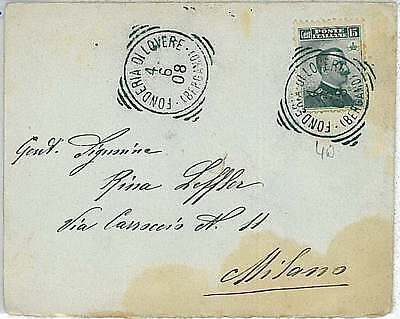 FONDERIA DI LOVERE · (BERGAMO)
4
6
08
Cent. POSTE 15
FONDERIA DI LOVERE · (BERGAMO)
40
Gent. Signorina
Rina Leffler
Via Carroccio N. 11
Milano